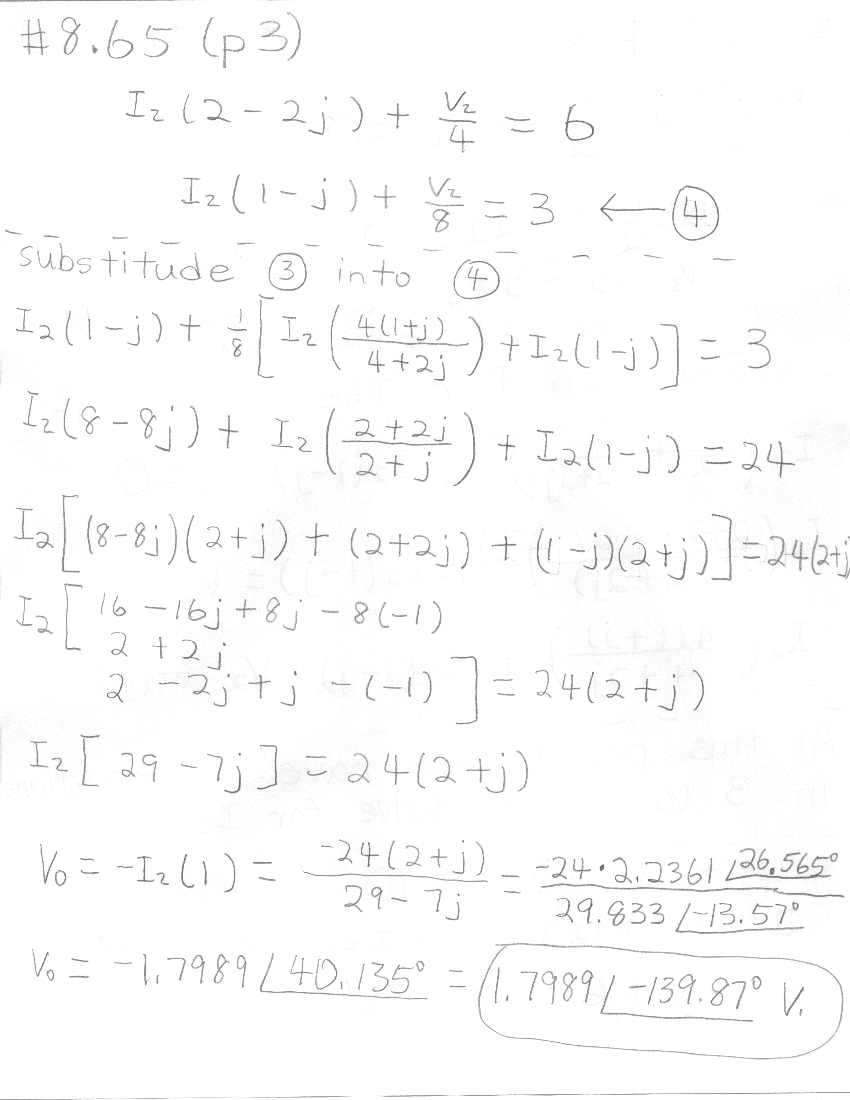 #8.65 (p3)
I₂(2-2j) + V₂/4 = 6
I₂(1-j) + V₂/8 = 3 ← ④
substitude ③ into ④
I₂(1-j) + 1/8 [I₂ (4(1+j)/(4+2j)) + I₂(1-j)] = 3
I₂(8-8j) + I₂ ((2+2j)/(2+j)) + I₂(1-j) = 24
I₂[(8-8j)(2+j) + (2+2j) + (1-j)(2+j)] = 24(2+j
I₂[ 16 -16j + 8j - 8(-1)
2 + 2j
2 - 2j + j - (-1) ] = 24(2+j)
I₂[ 29 - 7j ] = 24(2+j)
V₀ = -I₂(1) = -24(2+j)/(29-7j) = -24·2.2361∠26.565°/29.833∠-13.57°
V₀ = -1.7989∠40.135° = 1.7989∠-139.87° V.